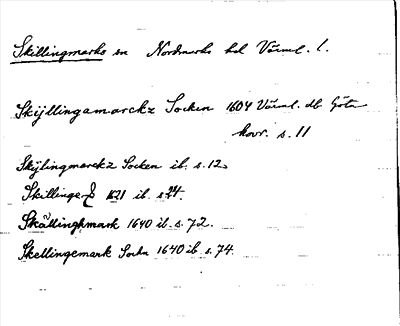 Skillingmarks sn Nordmarks hd Värml. l.
Skijllingamarckz Socken 1604 Värml. db Göta
hovr. s. 11
Skijlingmarckz Socken ib. s. 12
Skillinge 1621 ib. s.
Skållinghmark 1640 ib. s. 72.
Skellingemark Sochn 1640 ib s. 74.